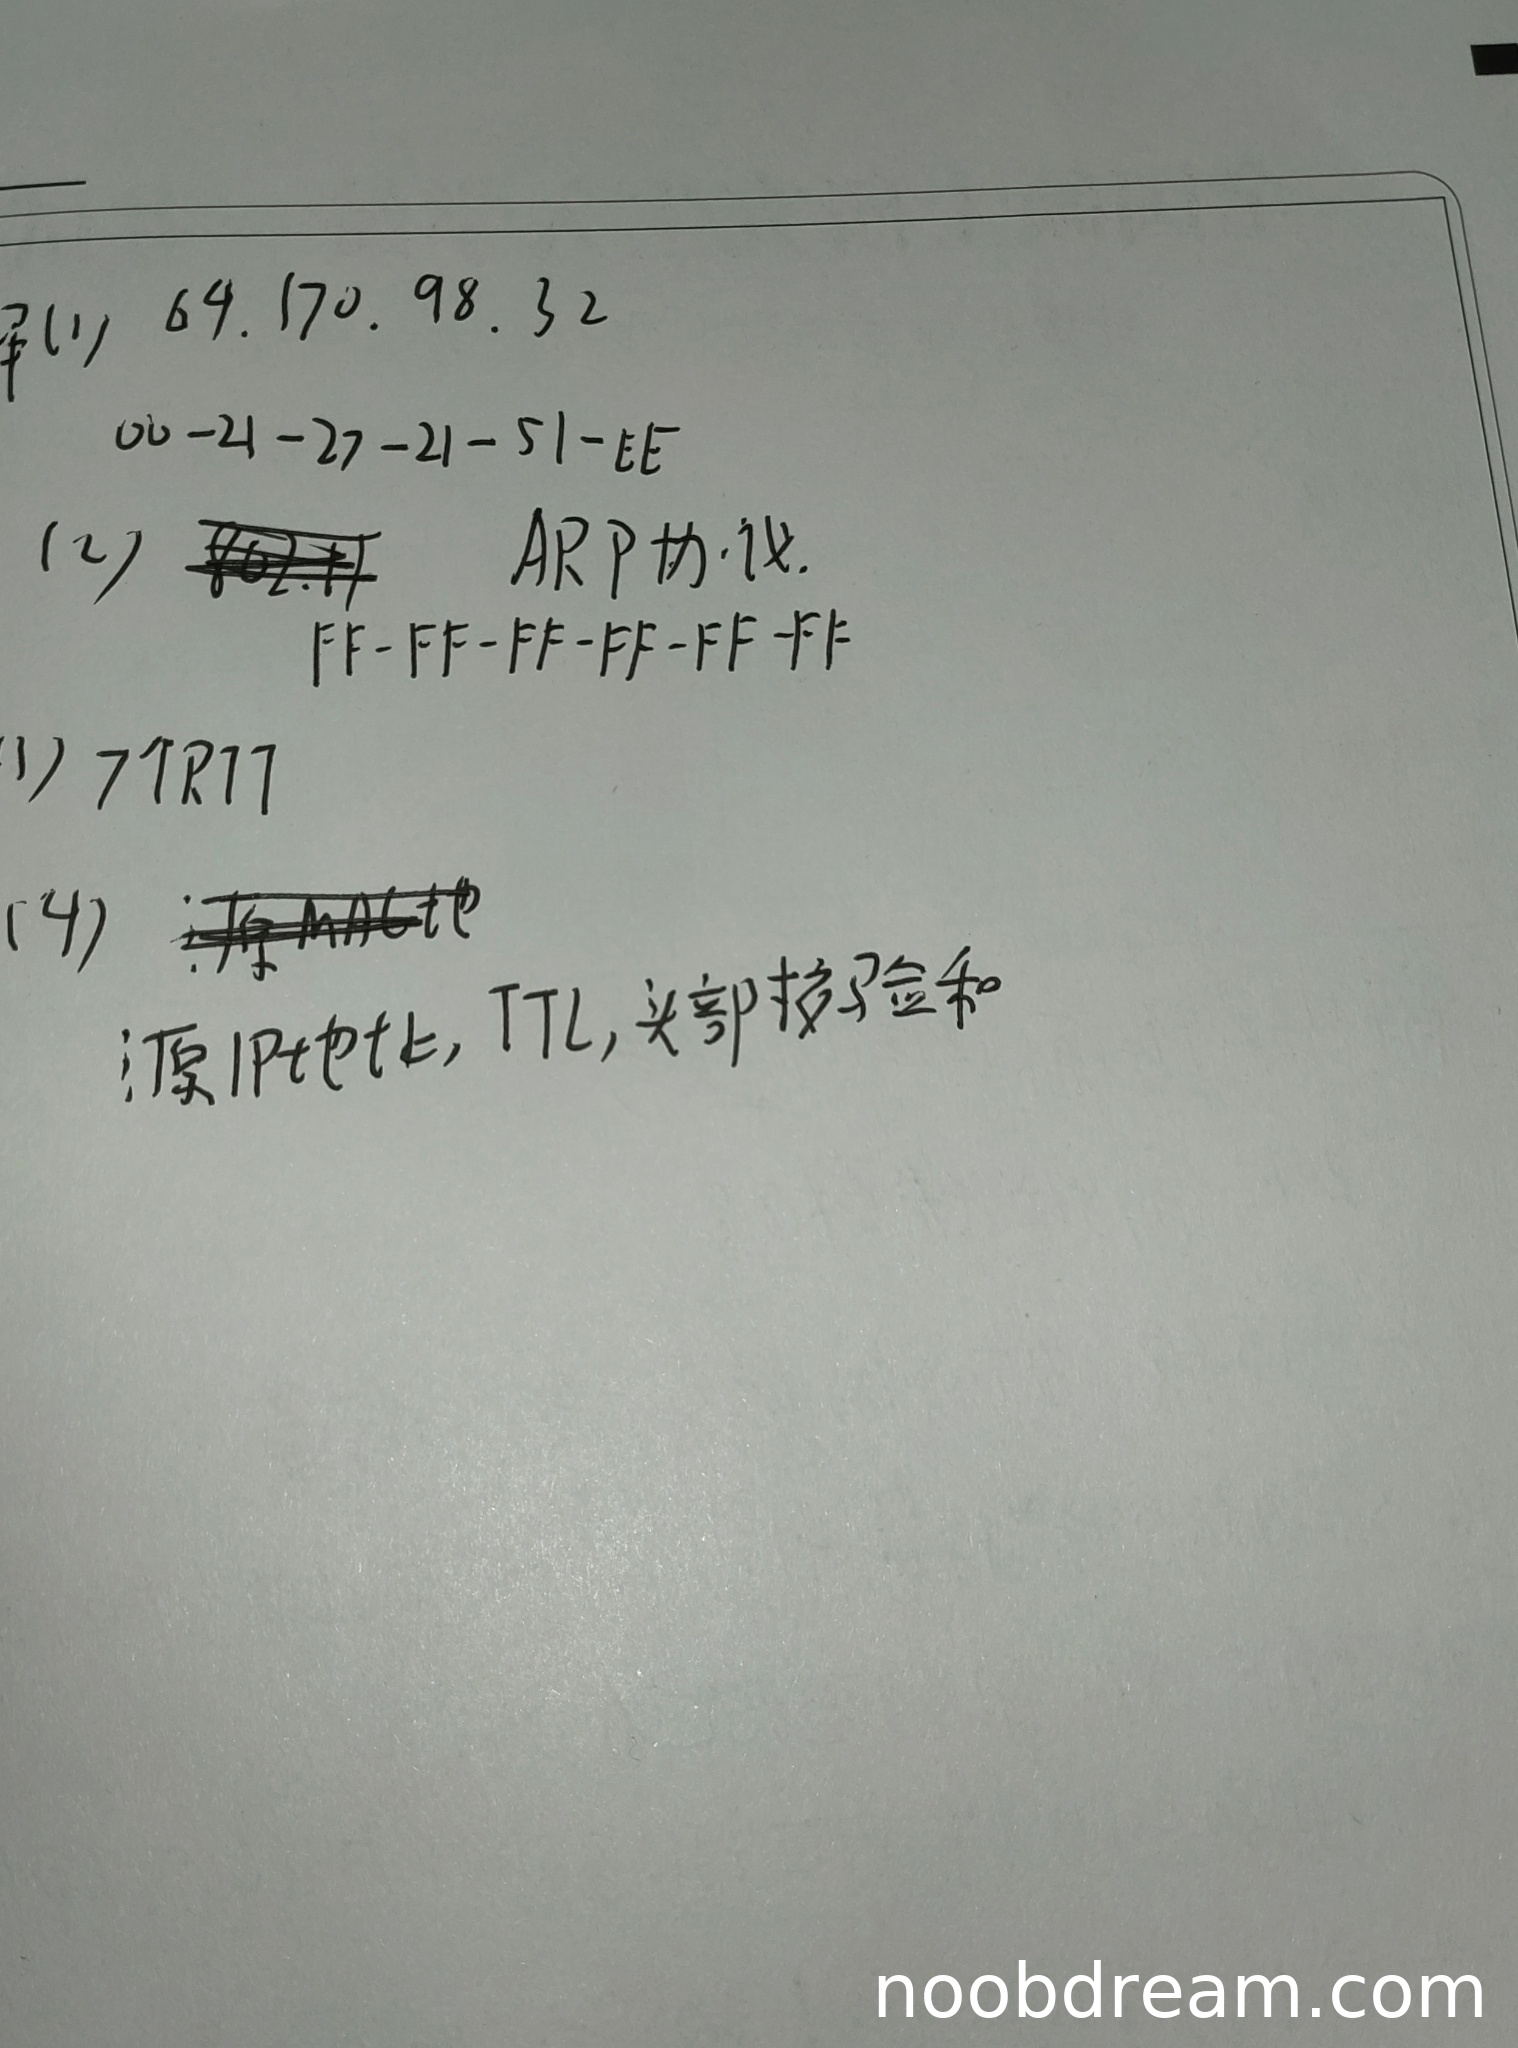 解(1) 64.170.98.32
00-21-27-21-51-EE
(2) ARP协议.
FF-FF-FF-FF-FF-FF
(3) 7个RTT
(4)
源IP地址, TTL, 头部校验和
noobdream.com